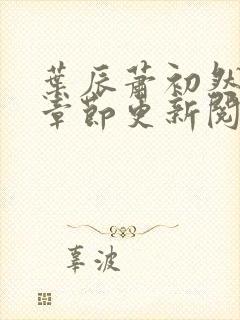 葉辰蕭初然
章節更新閱
辜波